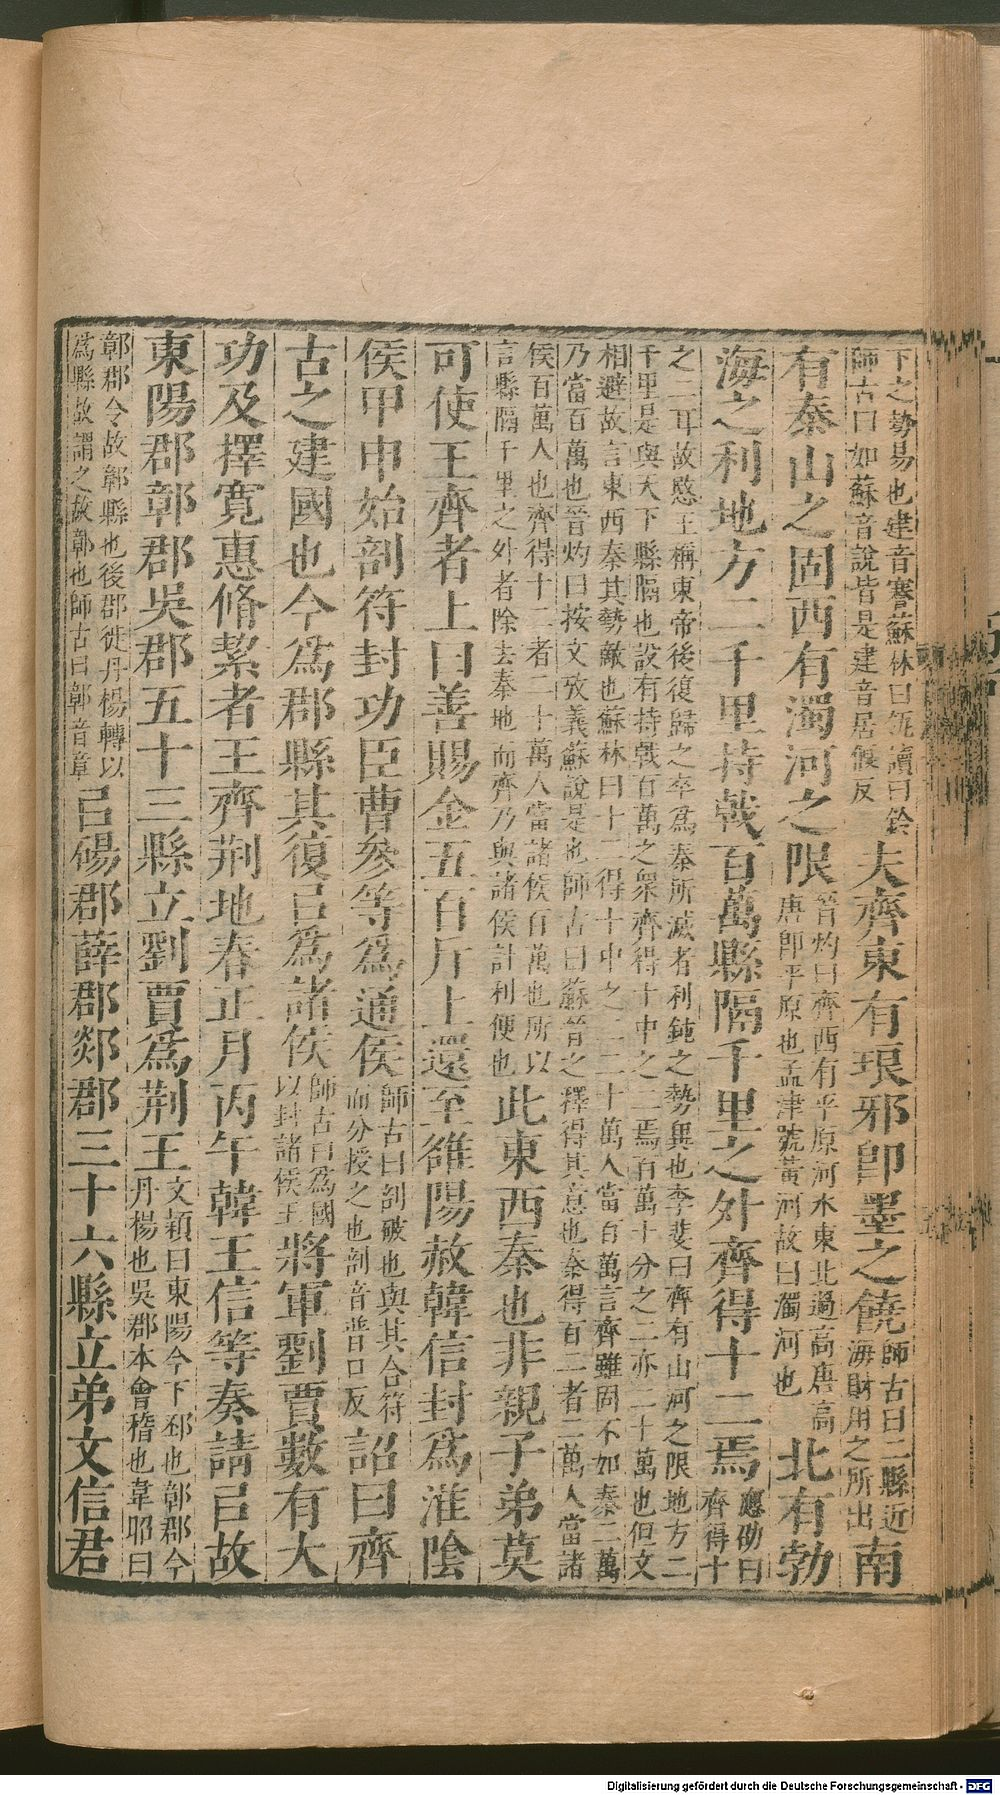 下之勢易也建音蹇蘇林曰瓴讀曰鈴
師古曰如蘇音說皆是建音居偃反
夫齊東有琅邪卽墨之饒
師古曰二縣近
海財用之所出
南
有泰山之固西有濁河之限
晉灼曰齊西有平原河水東北過高唐高
唐卽平原也孟津號黃河故曰濁河也
北有勃
海之利地方二千里持戟百萬縣隔千里之外齊得十二焉
應劭曰
齊得十
之二耳故愍王稱東帝後復歸之卒爲秦所滅者利鈍之勢異也李斐曰齊有山河之限地方二
千里是與天下縣隔也設有持戟百萬之衆齊得十中之二焉百萬十分之二亦二十萬也但文
相避故言東西秦其勢敵也蘇林曰十二得十中之二二十萬人當百萬言齊雖固不如秦二萬
乃當百萬也晉灼曰按文攷義蘇說是也師古曰蘇晉之釋得其意也秦得百二者二萬人當諸
侯百萬人也齊得十二者二十萬人當諸侯百萬也所以
言縣隔千里之外者除去秦地而齊乃與諸侯計利便也
此東西秦也非親子弟莫
可使王齊者上曰善賜金五百斤上還至雒陽赦韓信封爲淮陰
侯甲申始剖符封功臣曹參等爲通侯
師古曰剖破也與其合符
而分授之也剖音普口反
詔曰齊
古之建國也今爲郡縣其復㠯爲諸侯
師古曰爲國
以封諸侯王
將軍劉賈數有大
功及擇寬惠脩絜者王齊荆地春正月丙午韓王信等奏請㠯故
東陽郡鄣郡吳郡五十三縣立劉賈爲荆王
文穎曰東陽今下邳也鄣郡今
丹楊也吳郡本會稽也韋昭曰
鄣郡今故鄣縣也後郡徙丹楊轉以
爲縣故謂之故鄣也師古曰鄣音章
㠯碭郡薛郡郯郡三十六縣立弟文信君
Digitalisierung gefördert durch die Deutsche Forschungsgemeinschaft - DFG